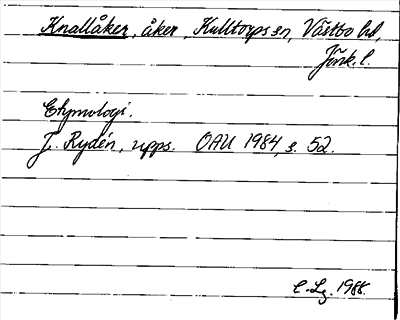 Knallåker, åker, Kulltorps sn, Västbo hd,
Jönk. l.
Etymologi.
J. Rydén, upps. OAU 1984, s. 52.
C. Lg. 1988.